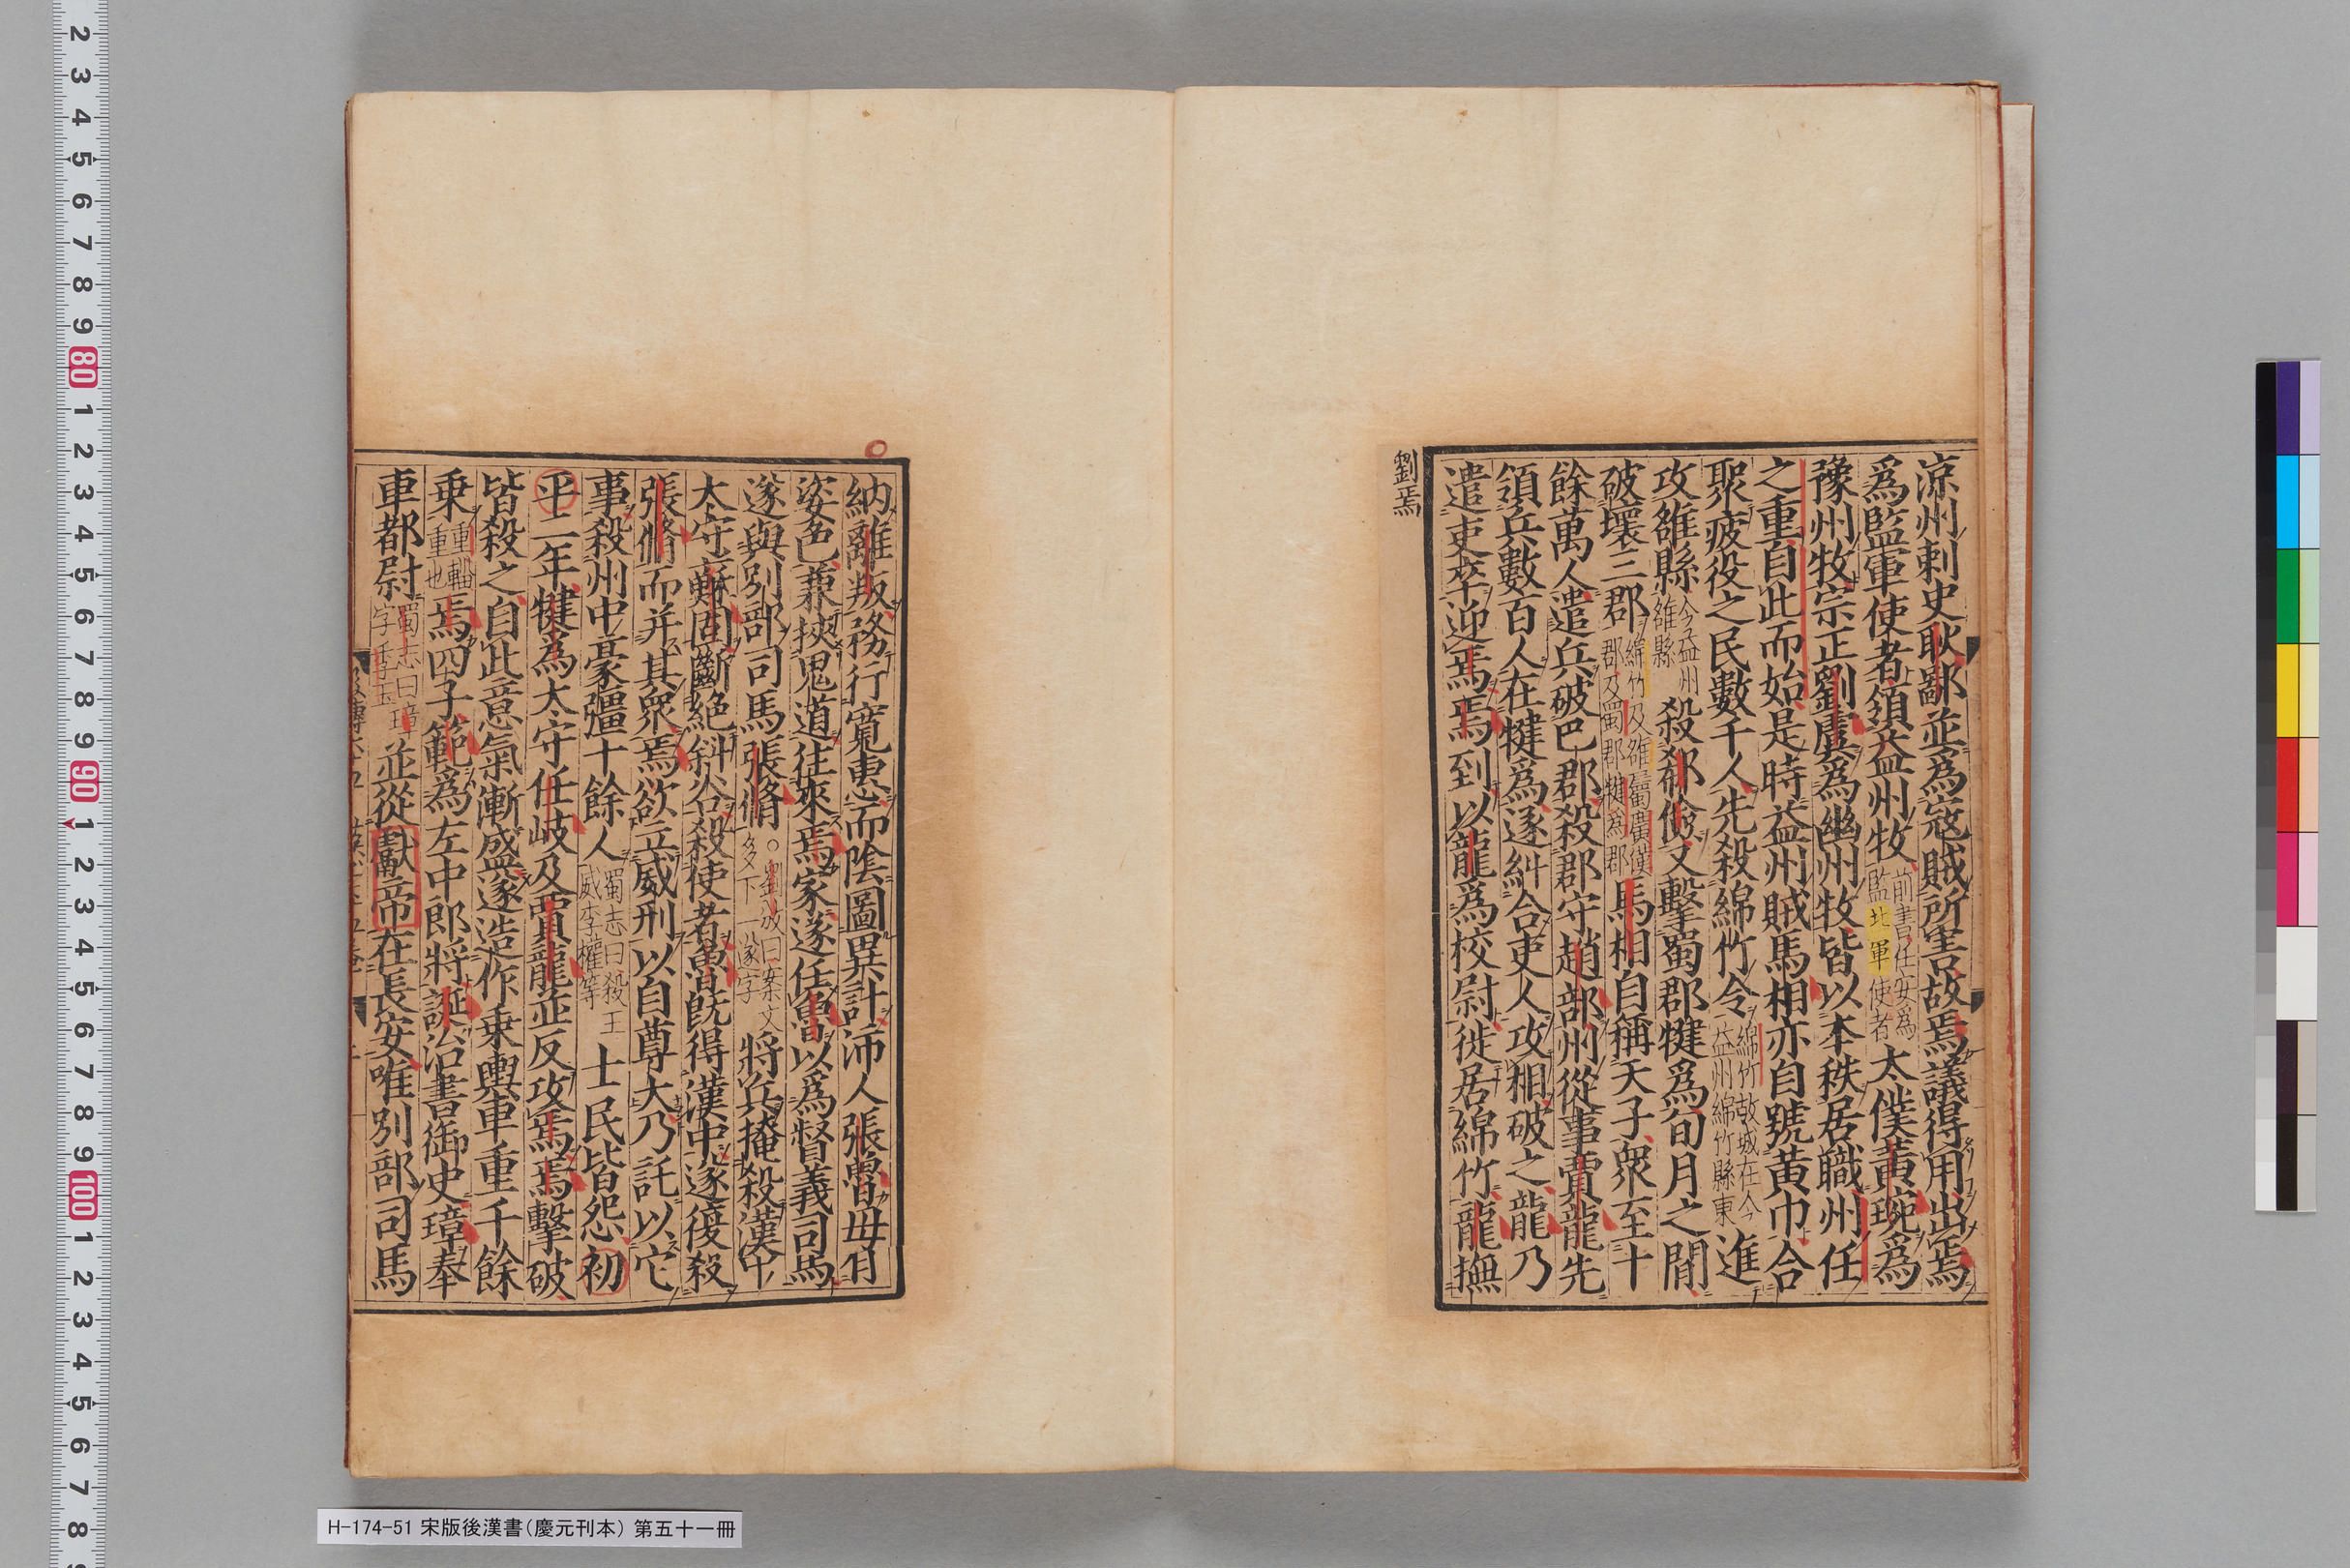 涼州刺史耿鄙並爲寇賊所害故焉議得用出焉
爲監軍使者領益州牧前書任安爲監北軍使者太僕黃琬爲
豫州牧宗正劉虞爲幽州牧皆以本秩居職州任
之重自此而始是時益州賊馬相亦自號黃巾合
聚疲役之民數千人先殺綿竹令綿竹故城在今益州綿竹縣東進
攻雒縣今益州雒縣殺郗儉又擊蜀郡犍爲旬月之閒
破壞三郡綿竹及雒屬廣漢郡及蜀郡犍爲郡馬相自稱天子衆至十
餘萬人遣兵破巴郡殺郡守趙部州從事賈龍先
領兵數百人在犍爲遂糾合吏人攻相破之龍乃
遣吏卒迎焉焉到以龍爲校尉徙居綿竹龍撫
劉焉
納離叛務行寬惠而陰圖異計沛人張魯母有
姿色兼挾鬼道往來焉家遂任魯以爲督義司馬
遂與別部司馬張脩○劉攽曰案文多下一遂字將兵掩殺漢中
太守蘇固斷絕斜谷殺使者魯旣得漢中遂復殺
張脩而并其衆焉欲立威刑以自尊大乃託以它
事殺州中豪彊十餘人蜀志曰殺王威李權等士民皆怨初
平二年犍爲太守任岐及賈龍並反攻焉焉擊破
皆殺之自此意氣漸盛遂造作乘輿車重千餘
乘重輜重也焉四子範爲左中郎將誕治書御史璋奉
車都尉蜀志曰璋字季玉並從獻帝在長安唯別部司馬
H-174-51 宋版後漢書(慶元刊本) 第五十一冊
2 3 4 5 6 7 8 9 80 1 2 3 4 5 6 7 8 9 90 1 2 3 4 5 6 7 8 9 100 1 2 3 4 5 6 7 8